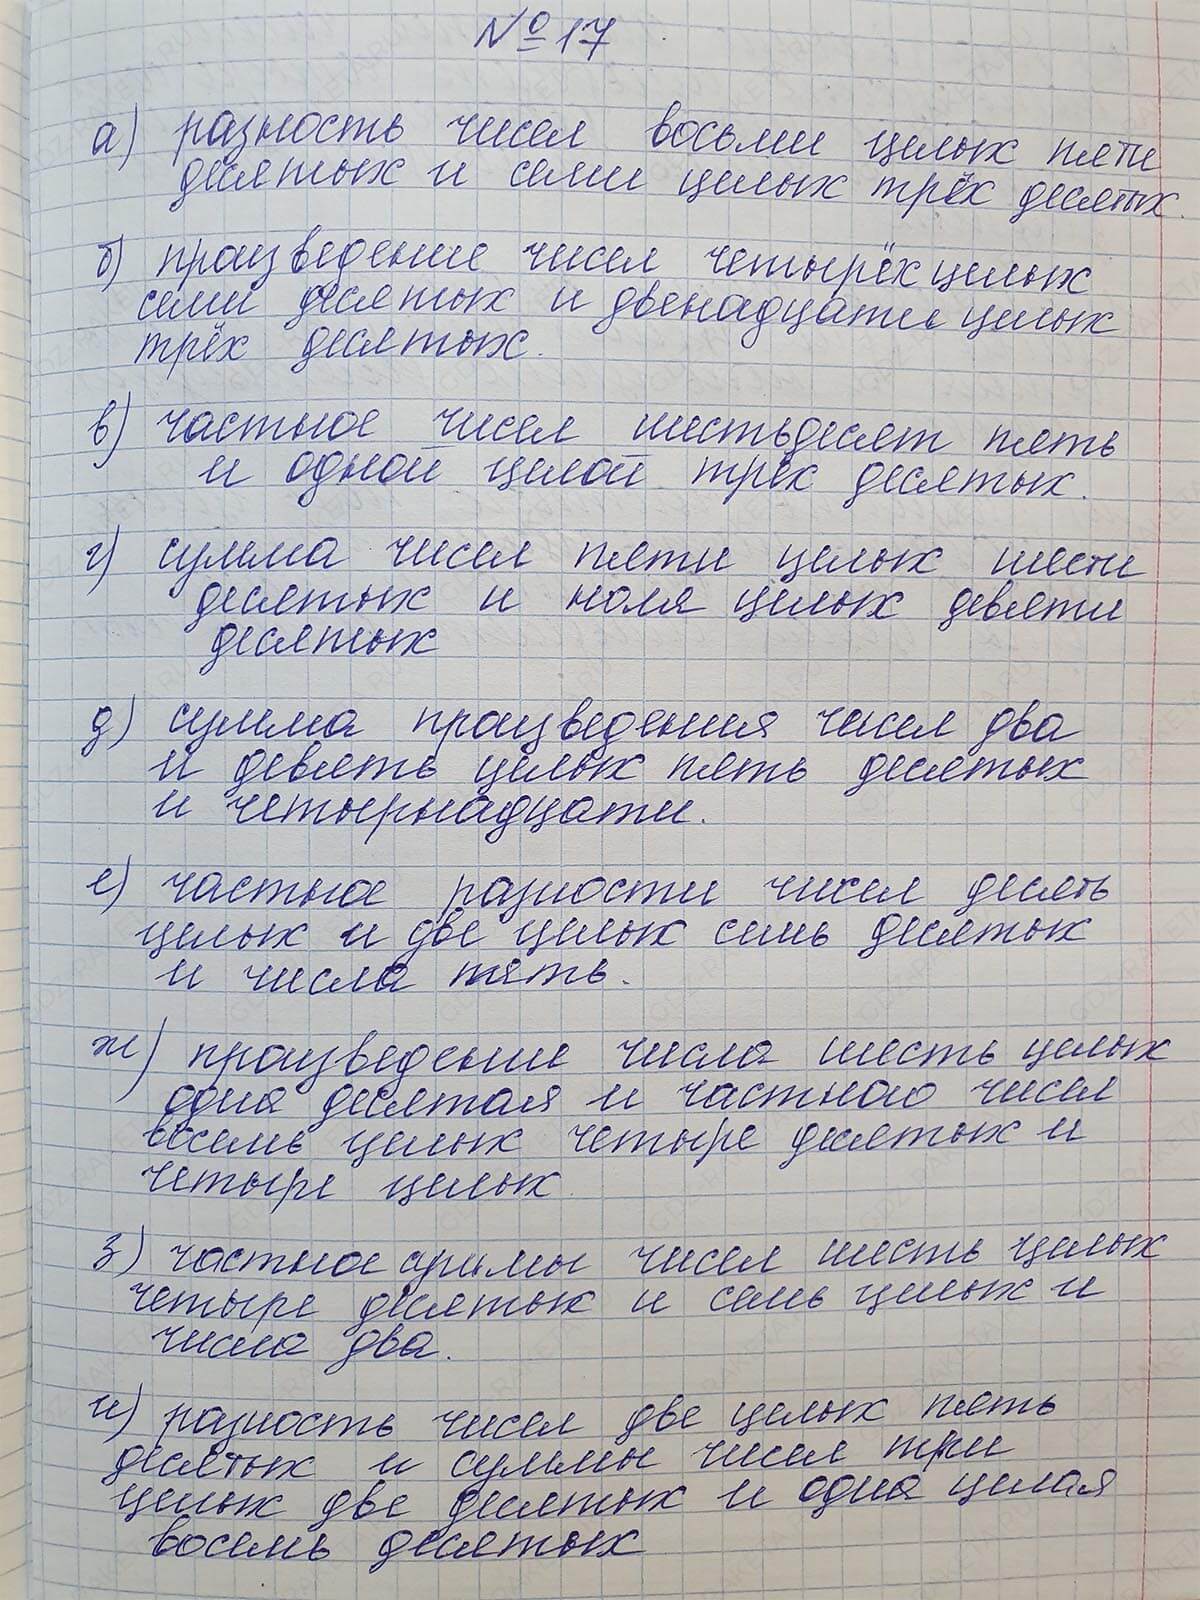 № 17
а) разность чисел восьми целых пяти
десятых и семи целых трёх десятых.
б) произведение чисел четырёх целых
семи десятых и двенадцати целых
трёх десятых.
в) частное чисел шестьдесят пять
и одной целой трёх десятых.
г) сумма чисел пяти целых шести
десятых и ноля целых девяти
десятых
д) сумма произведения чисел два
и девять целых пять десятых
и четырнадцати.
е) частное разности чисел десять
целых и две целых семь десятых
и числа пять.
ж) произведение числа шесть целых
одна десятая и частного чисел
восемь целых четыре десятых и
четыре целых
з) частное суммы чисел шесть целых
четыре десятых и семь целых и
числа два.
и) разность чисел две целых пять
десятых и суммы чисел три
целых две десятых и одна целая
восемь десятых